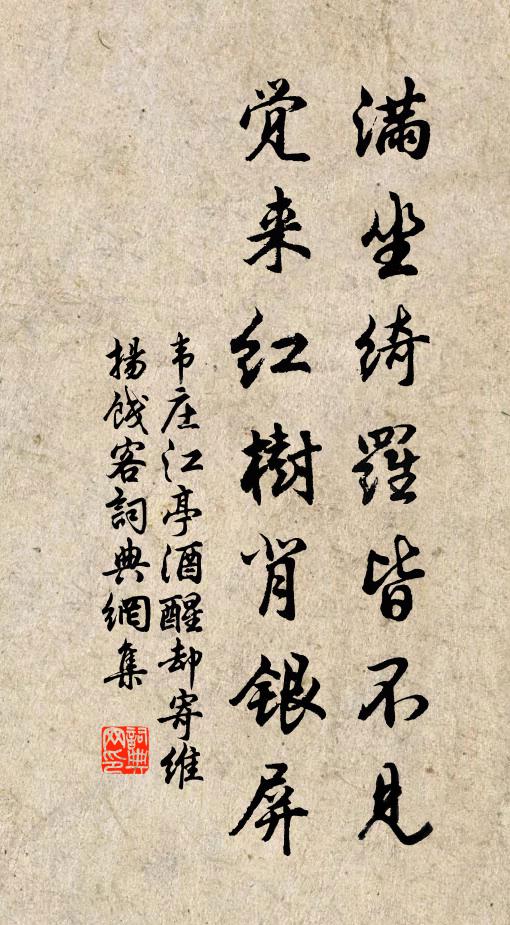 满坐绮罗皆不见
觉来红樹背银屏
韦庄江亭酒醒却寄维
揚饯客詞典網集
詞典
网印